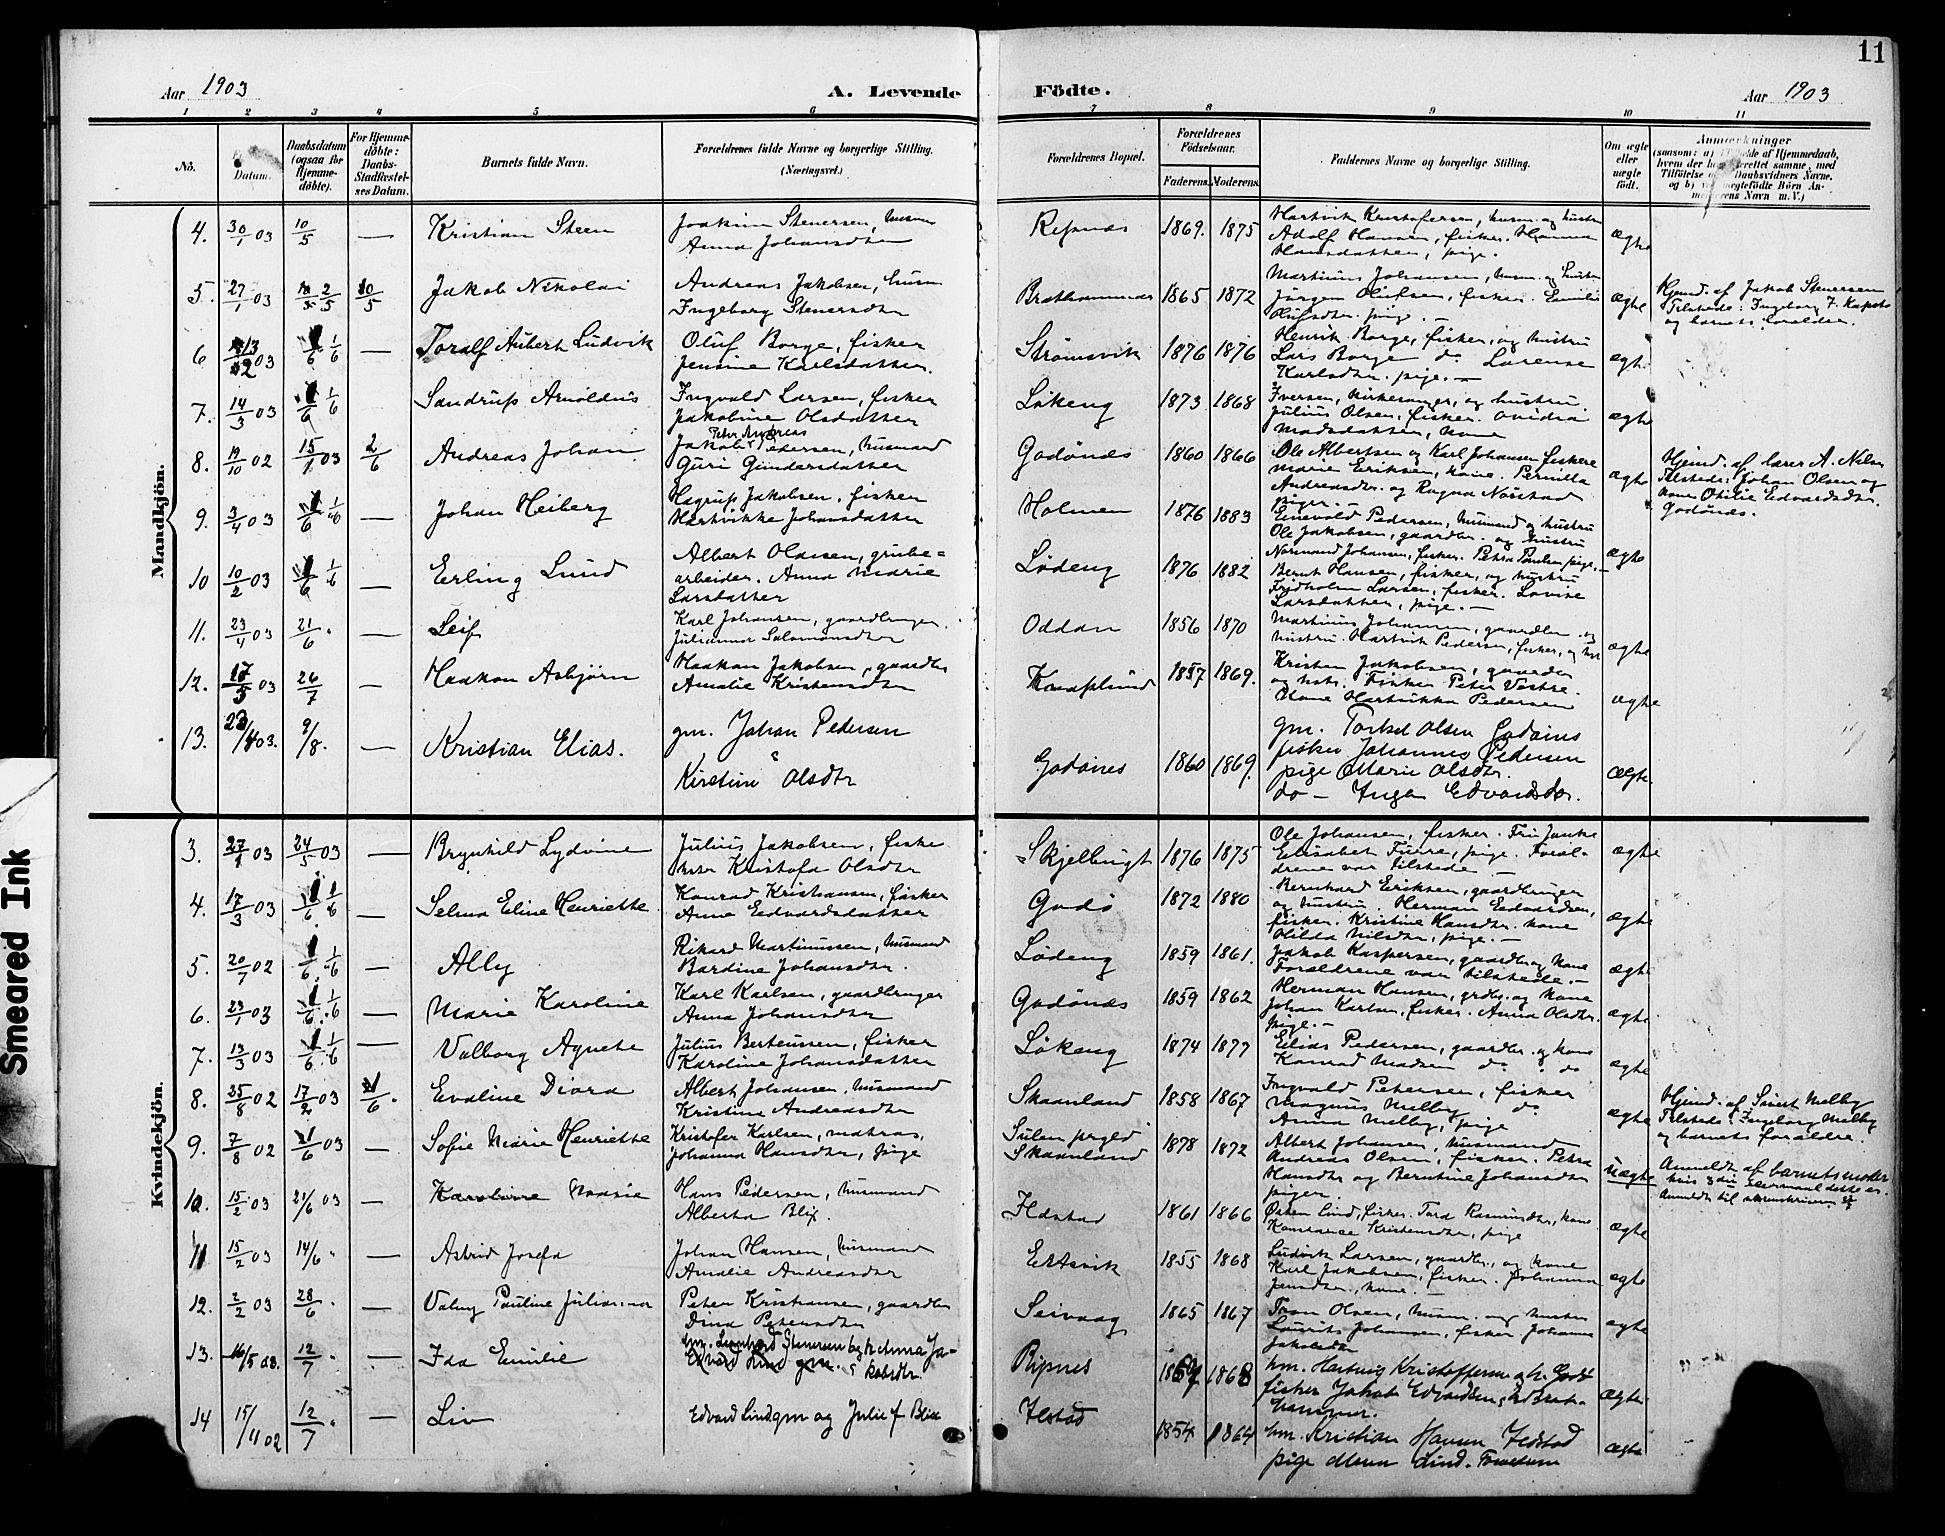 11
Aar 1903
A. Levende
Födte.
Aar 1903
1 2 3 4 5 6 7 8 9 10 11
No.
Datum.
Daabsdatum (ogsaa for Hjemmedöbte).
For Hjemmedöbte: Daabs-Stadfæstelses Datum.
Barnets fulde Navn.
Forældrenes fulde Navne og borgerlige Stilling. (Næringsvei.)
Forældrenes Bopæl.
Forældrenes Födselsaar.
Faderens. Moderens.
Faddernes Navne og borgerlige Stilling.
Om ægte eller uægte födt.
Anmærkninger
Mandkjön.
4. 30/1 03 10/5 — Kristian Steen
Joakim Stenersen, husm
Anna Johansdatter
Repnæs 1869. 1875
Hartvik Kristofersen, husm. og hustru
Adolf Hansen, fisker. Hanna
Hansdatter, pige.
ægte
5. 27/1 03 2/5 10/5 Jakob Nikolai
Andreas Jakobsen, husm
Ingeborg Stenersdtr
1865 1872
Martinus Johansen, husm. og hustru
Jørgen Olufsen, fisker. Emilie
Olufsdtr. pige. —
ægte
Hjemd. af Jakob Stenersen
Tilstede: Ingeborg
og barnets forældre.
6 03 1/6 — Toralf Aubert Ludvik
Oluf Borge, fisker
Jensine Karlsdatter.
Strømsvik 1876 1876
Henrik Borge, fisker, og hustru
Lars Borge do Lorense
Karlsdtr. pige. —
ægte
7. 14/3 03 1/6 Sandrup Arnoldus
Ingvald Larsen, fisker
Jakobine Olsdatter
Løkeng 1873 1868
Iversen, kirkesanger, og hustru
Julius Olsen, fisker. Ovidia
Madsdatter, kone
ægte
8. 19/10 02 15/1 03 2/6 Andreas Johan
Peter Andreas
Jakob Pedersen, husmand
Guri Gundersdatter
Godønes 1860 1866
Ole Albertsen og Karl Johansen fiskere
Marie Eriksen, kone. Pernilla
Andreasdtr. og Ragna Norstad
Piger. —
ægte
Hjemd. af lærer A. Nilsen
Tilstede: Johan Olsen og
kone Otilie Edvardsdtr.
Godønes.
9. 3/4 03 1/6 — Johan Heiberg
Hagrup Jakobsen, fisker
Hartvikke Johansdatter
Holmen 1876 1883
Enevold Pedersen, husmand og hustru
Ole Jakobsen, gaardbr. og hustru
ægte
10 10/2 03 1/6 — Erling Lund
Albert Olausen, grube=
arbeider. Anna Marie
Larsdatter
Lødeng 1876 1882
Normand Johansen, fisker. Petra Paulsen pige. —
Bernt Hansen, fisker, og hustru
Fridholm Larsen, fisker. Lovise
Larsdatter, pige. —
11. 23/4 03 21/6 — Leif
Karl Johansen, gaardbruger
Julianna Salamonsdtr
Oddan 1856 1870
Martinus Johannesen, gaardbr. og
hustru. Hartvik Pedersen, fisker, og hst
ægte
12. 03 26/7 — Haakon Asbjørn
Haakon Jakobsen, gaardbr
Amalie Kristensdtr
Knaplund 1857 1869.
Kristen Jakobsen, gaardbr
og hstr. Fisker Peter Vestre.
Kone Hartvikka Pedersen
ægte
13. 23/4 03. 9/8. — Kristian Elias.
gm. Johan Pedersen
Kirstine Olsdtr
Godønes 1860 1869.
gm. Torkel Olsen Godønes
fisker Johannes Pedersen
pige Marie Olsdtr.
do — Inga Edvardsdtr.
Ægte
Kvindekjön.
3. 27/1 03 24/5 03 — Brynhild Lydvine
Julius Jakobsen, fisker
hstr Kristofa Olsdtr
Skjelbugt 1876 1875
Ole Johansen, fisker.
Elisabet Furre, pige. Foræl-
drene var tilstede —
ægte
4. 17/3 03 1/6 — Selma Eline Henriette
Konrad Kristiansen, fisker
Anne Edvardsdatter
Godø 1872 1880
Bernhard Eriksen, gaardbruger
og hustru. Herman Edvardsen,
fisker. Kristine Hansdtr. kone
Hilda Nilsdtr, pige. —
ægte
5. 20/7 02 1/6 — Ally
Rikard Martinussen, husmand
Bardine Johansdtr.
Lødeng 1859 1861.
Jakob Kaspersen, gaardbr. og kone
Forældrene var tilstede. —
ægte
6. 23/1 03 1/6 — Marie Karoline
Karl Karlsen, gaardbruger
Anna Johansdtr
Godønes 1859 1862
Herman Hansen, grdbr. og kone
Johan Karlsen, fisker. Anna Olsdtr.
pige. —
ægte
7. 13/3 03 1/6 — Valborg Agnete
Julius Berteussen, fisker
Karoline Johansdatter
Løkeng 1874 1877
Elias Pedersen, gaardbr. og kone
Konrad Madsen do. do
ægte
8. 25/8 02 17/2 03 1/6. Evaline Diora
Albert Johansen, husmand
Kristine Andreasdtr
Skaanland 1858 1867
Ingvald Petersen, fisker
Magnus Melby do.
Anna Melby, pige
ægte
Hjemd. af Sivert Melby
Tilstede: Ingeborg Melby
og barnets forældre.
9. 7/8 02 1/6 03 — Sofie Marie Henriette
Kristofer Karlsen, matros,
Johanna Hansdtr, pige
Skaanland 1878 1872
Albert Johansen, husmand
Andreas Olsen, fisker. Petra
Hansdtr og Berntine Johansdtr
piger.
uægte
Anmeldt af barnets moder
10. 15/2 03 21/6 03 — Karoline Maarie
Hans Pedersen, husmand
Alberta Blix.
Ildstad 1861 1866
Østen Lind, fisker. Tora Rasmusdtr, kone.
Konstance Kristensdtr, pige
ægte
11 15/2 03 14/6 " — Astrid Josefa
Johan Hansen, husmand
Amalie Andreasdtr
Ertsvik 1855 1868
Ludvik Larsen, gaardbr., og kone
Karl Jakobsen, fisker. Johanna
Jensdtr., kone. —
ægte
12. 2/2 03 28/6 " — Valmy Pauline Julianna
Peter Kristiansen, gaardbr
Dina Petersdtr
Seivaag 1865 1867
Tron Olsen, husm. og hustru
Laurits Johansen, fisker Johanna
Jakobsdtr
ægte
13. 16/5 03. 12/7 " — Ida Emilie
hm. Leonhard Stenersen og h. Anna Ja-
kobsdtr.
Ripnes 1868
hm. Hartvig Kristoffersen og h. Godø
fisker Jakob Edvardsen,
hammer.
Ægte
14 15/11 02 12/7 " — Liv
Edvard Lind gm og Julie f Blix
Ilstad 1854 1864
hm. Kristian Hansen Ildstad
pige Maren Lind. Forældrene
ægte
Smeared Ink